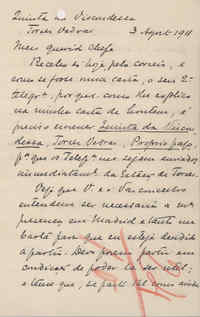 Quinta da Viscondessa
Torres Vedras 3 Agosto 1911
Meu querido Chefe
Recebo hoje pelo correio, e
como se fosse uma carta, o seu 2º
telegr.ª, por que como lhe explico
na minha carta de hontem, é
preciso escrever Quinta da Viscon
dessa, Torres Vedras, Proprio pago,
pª que os telegrªs me sejam enviados
immediatamte da Estação de Torres.
Vejo que V. e o Vasconcellos
entendem ser necessaria a m.ª
presença em Madrid e tanto me
basta para que eu esteja decidido
a partir. Devo porem partir em
condições de poder lá ser util;
e creio que, se parti tal como ainda